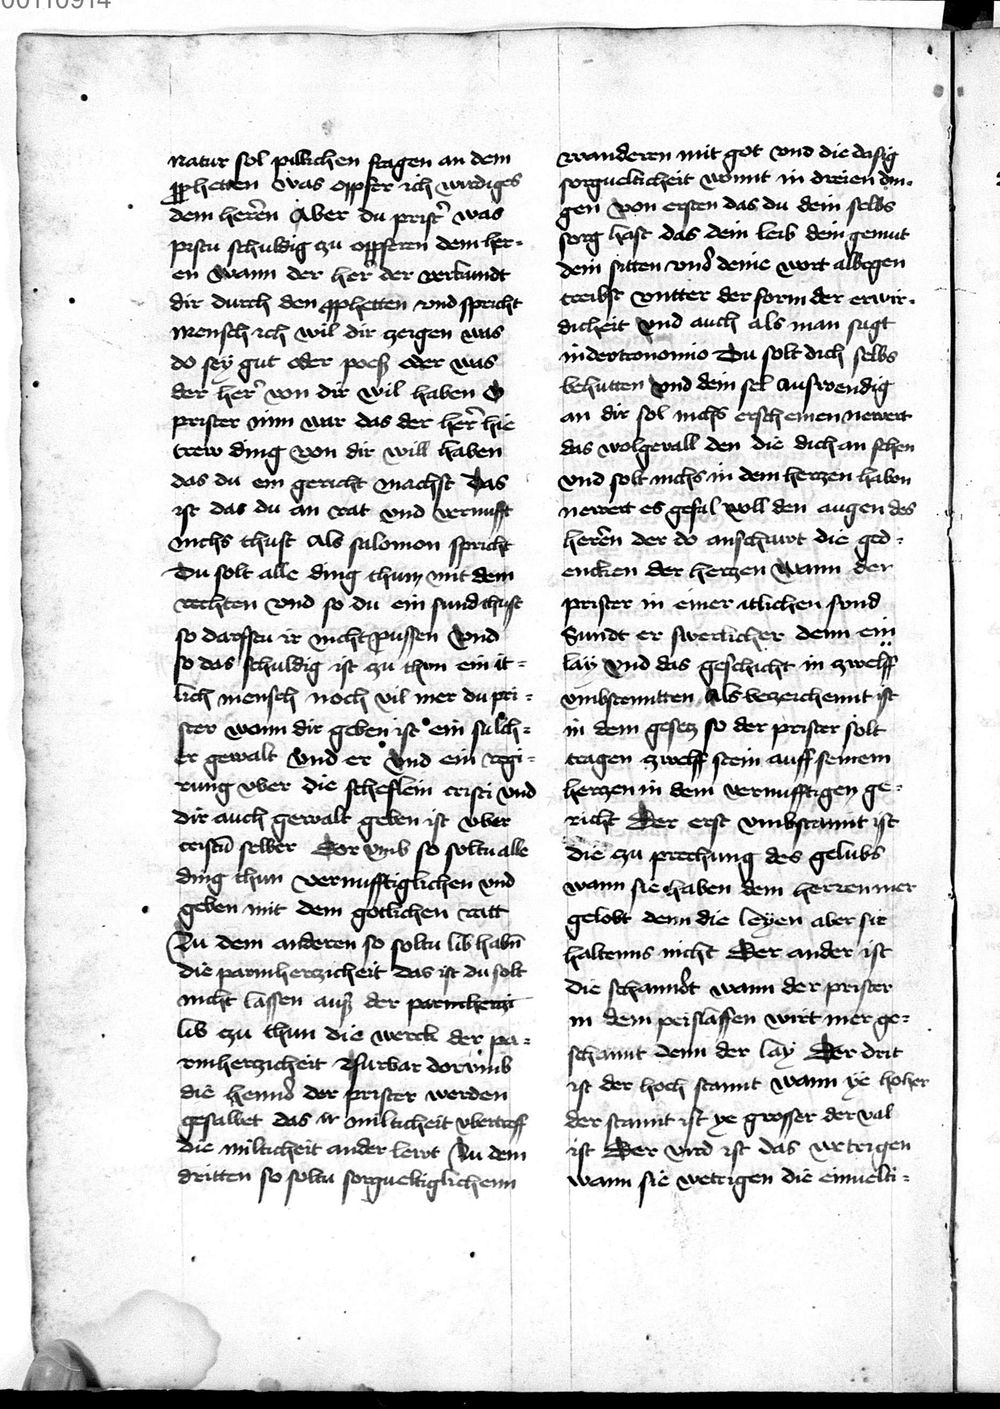 00110914
natur sol pillichen fragen an dem
ꝓphetten was oppfer ich wirdiges
dem heren Aber du prist' was
pistu schuldig zu oppferen dem her=
en wann der her' der verkundt
dir durch den ꝓphetten vnd spricht
mensch ich wil dir zeigen was
do sey gut oder poeß oder was
der her' von dir wil haben O
prister nim war das der her' hie
trew ding von dir will haben
das du ein gericht machst Das
ist das du an rat vnd vernufft
nichs thust Als salomon spricht
Du solt alle ding thun mit dem
rechten vnd so du ein sund thust
so darfftu ir nicht pussen Vnd
so das schuldig ist zu thun ein it=
lich mensch noch vil mer du pri=
ster wann dir geben ist ein sulch=
er gewalt vnd er vnd ein regi=
rung vber die scheflein cristi vnd
dir auch gewalt geben ist vber
cristu selber Dor vmb so soltu alle
ding thun vernufftiglichen vnd
geben mit dem gotlichen ratt
Zu dem anderen so soltu lib habn
die parmherzicheit das ist du solt
nicht lassen auß der parmherzi
lib zu thun die werck der pa=
rmherzicheit Furbar dor vmb
die hennd der prister werden
gesalbet das ir milticheit vbertreff
die milticheit ander lewt Zu dem
dritten so soltu sorgueltiglichenn
wanderen mit got vnd die dasig
sorguelticheit wonnt in dreien din=
gen Von ersten das du dein selbs
sorg hast das dein leib dein gemut
dein sitten vnd deine wort albegen
treibst vntter der form der erwir=
dicheit Vnd auch als man sagt
in deutronomio Du solt dich selbs
behutten Vnd dein sel Auswendig
an dir sol nichs erscheinen newert
das wolgevall den die dich an sehen
vnd solt nichs in dem herzen haben
newert es gefal woll den augen des
heren der do anschawt die ged=
encken der herzen wann der
prister in einer itlichen sund
Sundt er swerlicher denn ein
lay Vnd das geschicht in zwelff
vmbstentten Als bezeichennt ist
in dem gesetz so der prister solt
tragen zwelff stein auff seinem
herzen in dem vernufftigen ge=
richt Der erst vmbstannt ist
die zu prechung des gelubs
wann sie haben dem herren mer
gelobt denn die leyen aber sie
haltenns nicht Der ander ist
die schannt wann der prister
in dem peislaffen wirt mer ge=
schannt denn der lay Der drit
ist der hoch stannt wann ye hoher
der stannt ist ye grosser der val
ist Der vird ist das wetrigen
wann sie wetrigen die einuelti=